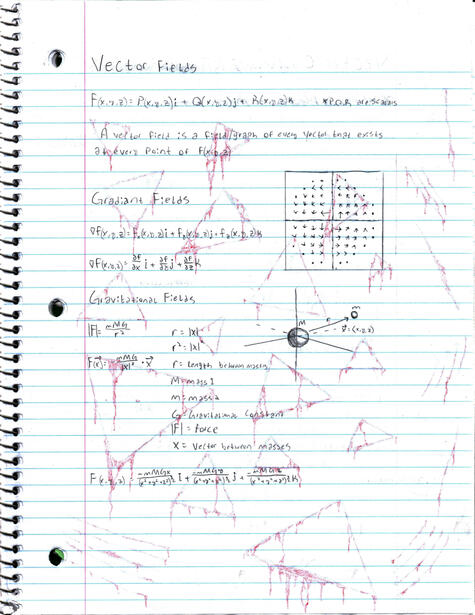 Vector Fields
F(x,y,z) = P(x,y,z)i + Q(x,y,z)j + R(x,y,z)k *P,Q,R are scalars
A vector field is a field/graph of every vector that exists
at every point of F(x,y,z)
Gradient Fields
∇F(x,y,z) = fₓ(x,y,z)i + fᵧ(x,y,z)j + f_z(x,y,z)k
∇F(x,y,z) = ∂F/∂x i + ∂F/∂y j + ∂F/∂z k
Gravitational Fields
|F| = mMG/r² r = |x|
r² = |x|²
r = length between masses
M = mass 1
m = mass 2
G = Gravitational Constant
|F| = Force
X = Vector between masses
M
r
m